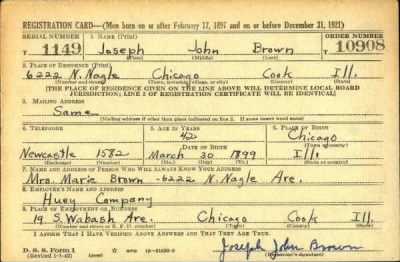 REGISTRATION CARD—(Men born on or after February 17, 1897 and on or before December 31, 1921)
SERIAL NUMBER 1. NAME (Print) ORDER NUMBER
T 1149 Joseph John Brown T 10908
(First) (Middle) (Last)
2. PLACE OF RESIDENCE (Print)
6222 N. Nagle Chicago Cook Ill.
(Number and street) (Town, township, village, or city) (County) (State)
[THE PLACE OF RESIDENCE GIVEN ON THE LINE ABOVE WILL DETERMINE LOCAL BOARD
JURISDICTION; LINE 2 OF REGISTRATION CERTIFICATE WILL BE IDENTICAL]
3. MAILING ADDRESS
Same
[Mailing address if other than place indicated on line 2. If same insert word same]
4. TELEPHONE 5. AGE IN YEARS 6. PLACE OF BIRTH
42 Chicago
DATE OF BIRTH (Town or county)
Newcastle 1582 March 30 1899 Ill.
(Exchange) (Number) (Mo.) (Day) (Yr.) (State or country)
7. NAME AND ADDRESS OF PERSON WHO WILL ALWAYS KNOW YOUR ADDRESS
Mrs. Marie Brown -6222 N. Nagle Ave.
8. EMPLOYER'S NAME AND ADDRESS
Huey Company
9. PLACE OF EMPLOYMENT OR BUSINESS
19 S. Wabash Ave. Chicago Cook Ill.
(Number and street or R. F. D. number) (Town) (County) (State)
I AFFIRM THAT I HAVE VERIFIED ABOVE ANSWERS AND THAT THEY ARE TRUE.
D. S. S. Form 1
(Revised 1-1-42) (over) Joseph John Brown
(Registrant's signature)